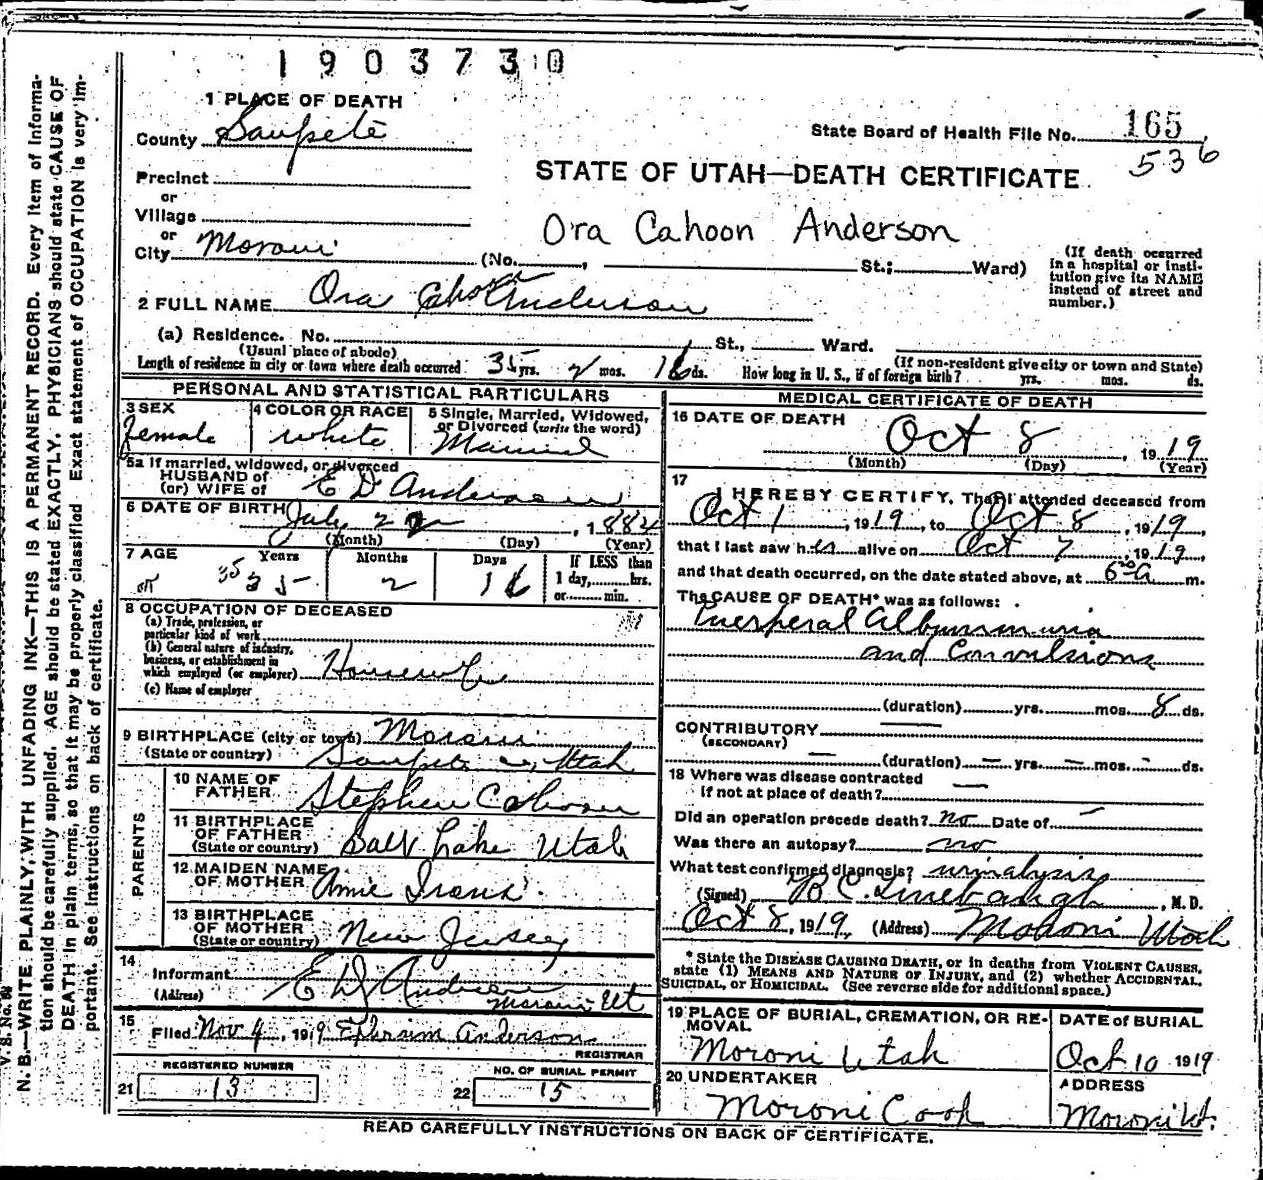 1903730
1 PLACE OF DEATH
County Sanpete
State Board of Health File No. 165
536
Precinct
STATE OF UTAH—DEATH CERTIFICATE
or
Village
or
Ora Cahoon Anderson
City Moroni (No. , St.; Ward)
(If death occurred in a hospital or institution give its NAME instead of street and number.)
2 FULL NAME Ora Anderson
(a) Residence. No. St., Ward.
(Usual place of abode) (If non-resident give city or town and State)
Length of residence in city or town where death occurred 35 yrs. 2 mos. 16 ds. How long in U. S., if of foreign birth? yrs. mos. ds.
PERSONAL AND STATISTICAL PARTICULARS
3 SEX 4 COLOR OR RACE 5 Single, Married, Widowed, or Divorced (write the word)
Female white Married
5a If married, widowed, or divorced
HUSBAND of
(or) WIFE of E D Anderson
6 DATE OF BIRTH July 22, 1882
(Month) (Day) (Year)
7 AGE Years Months Days If LESS than
1 day, hrs.
or min.
35 35 2 16
8 OCCUPATION OF DECEASED
(a) Trade, profession, or
particular kind of work
(b) General nature of industry,
business, or establishment in
which employed (or employer) Housewife
(c) Name of employer
9 BIRTHPLACE (city or town) Moroni
(State or country) Sanpete Co, Utah
PARENTS
10 NAME OF
FATHER Stephen Cahoon
11 BIRTHPLACE
OF FATHER
(State or country) Salt Lake Utah
12 MAIDEN NAME
OF MOTHER Annie
13 BIRTHPLACE
OF MOTHER
(State or country) New Jersey
14
Informant E D Anderson
(Address) Moroni Ut
15
Filed Nov 4, 1919 Ephraim Anderson
REGISTRAR
REGISTERED NUMBER NO. OF BURIAL PERMIT
21 13 22 15
MEDICAL CERTIFICATE OF DEATH
16 DATE OF DEATH
Oct 8, 1919
(Month) (Day) (Year)
17
I HEREBY CERTIFY, That I attended deceased from
Oct 1, 1919, to Oct 8, 1919,
that I last saw her alive on Oct 7, 1919,
and that death occurred, on the date stated above, at 6 30 a m.
The CAUSE OF DEATH* was as follows:
Puerperal Albuminuria
and Convulsions
(duration) yrs. mos. 8 ds.
CONTRIBUTORY —
(SECONDARY)
— (duration) — yrs. — mos. - ds.
18 Where was disease contracted
if not at place of death? —
Did an operation precede death? no Date of —
Was there an autopsy? no
What test confirmed diagnosis? urinalysis
(Signed) B C Linebaugh, M. D.
Oct 8, 1919, (Address) Moroni Utah
* State the DISEASE CAUSING DEATH, or in deaths from VIOLENT CAUSES,
state (1) MEANS AND NATURE OF INJURY, and (2) whether ACCIDENTAL,
SUICIDAL, or HOMICIDAL. (See reverse side for additional space.)
19 PLACE OF BURIAL, CREMATION, OR REMOVAL DATE of BURIAL
Moroni Utah Oct 10 1919
20 UNDERTAKER ADDRESS
Moroni Cook Moroni Ut.
READ CAREFULLY INSTRUCTIONS ON BACK OF CERTIFICATE.
N. B.—WRITE PLAINLY, WITH UNFADING INK—THIS IS A PERMANENT RECORD. Every item of Informa-
tion should be carefully supplied. AGE should be stated EXACTLY. PHYSICIANS should state CAUSE OF
DEATH in plain terms, so that it may be properly classified. Exact statement of OCCUPATION is very im-
portant. See instructions on back of certificate.